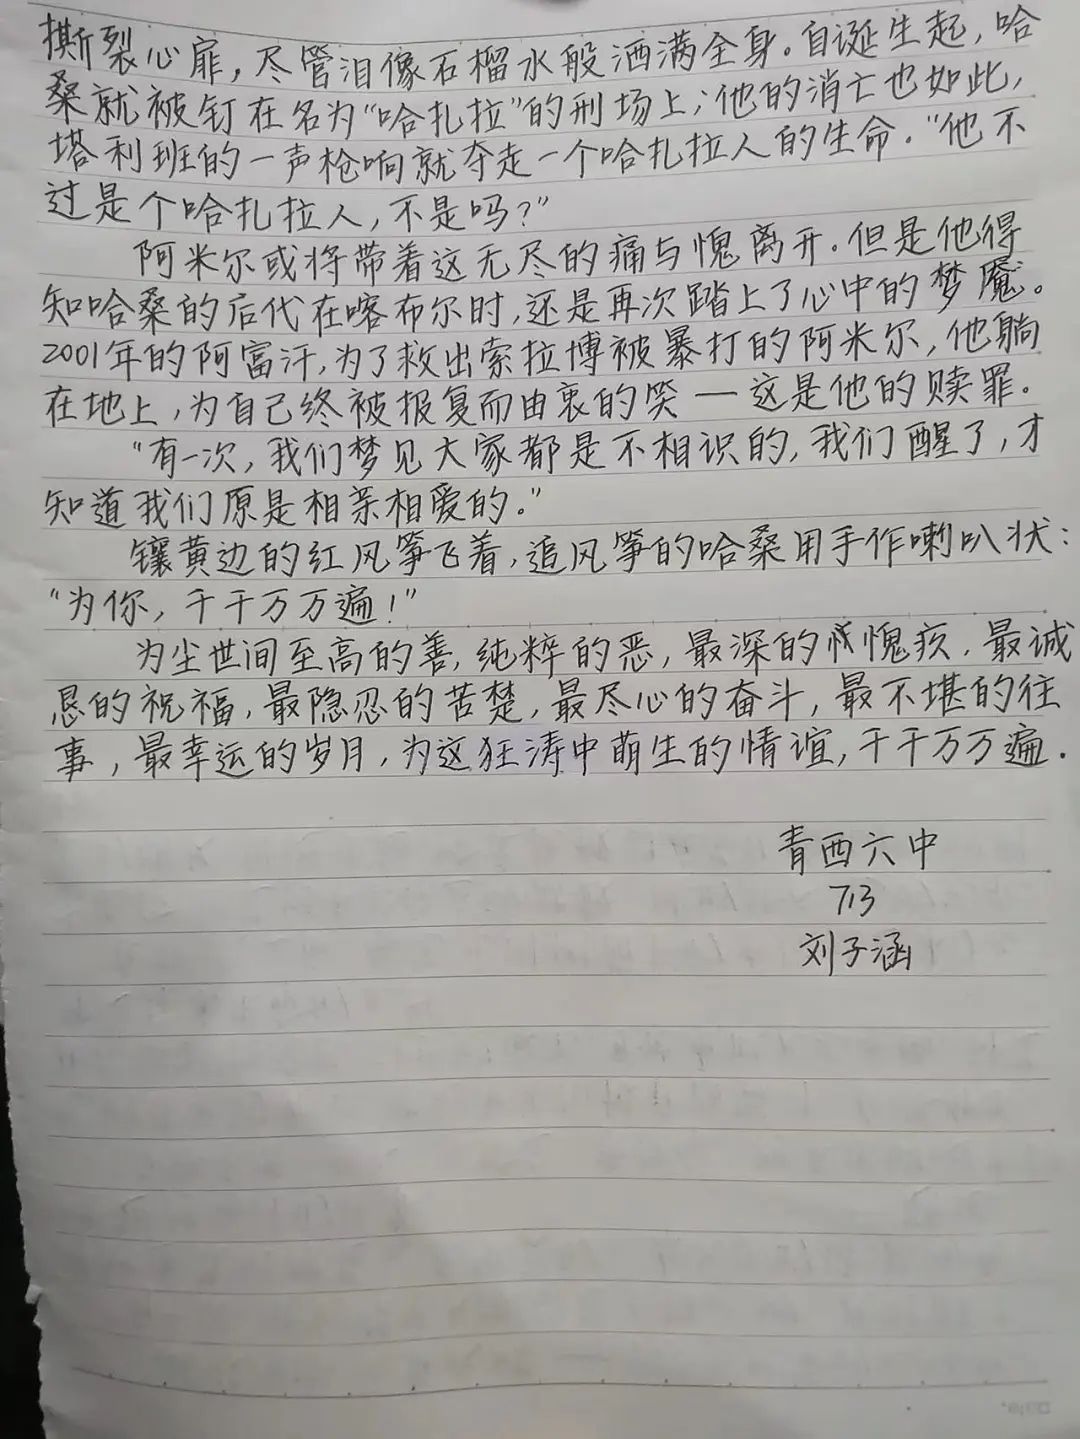 撕裂心扉，尽管泪像石榴水般洒满全身。自诞生起，哈
桑就被钉在名为“哈扎拉”的刑场上；他的消亡也如此，
塔利班的一声枪响就夺走一个哈扎拉人的生命．“他不
过是个哈扎拉人，不是吗？”
阿米尔或将带着这无尽的痛与愧离开．但是他得
知哈桑的后代在喀布尔时，还是再次踏上了心中的梦魇。
2001年的阿富汗，为了救出索拉博被暴打的阿米尔，他躺
在地上，为自己终被报复而由衷的笑—这是他的赎罪．
“有一次，我们梦见大家都是不相识的，我们醒了，才
知道我们原是相亲相爱的。”
镶黄边的红风筝飞着，追风筝的哈桑用手作喇叭状：
“为你，千千万万遍！”
为尘世间至高的善，纯粹的恶，最深的愧疚，最诚
恳的祝福，最隐忍的苦楚，最尽心的奋斗，最不堪的往
事，最幸运的岁月，为这狂涛中萌生的情谊，千千万万遍．
青西六中
713
刘子涵